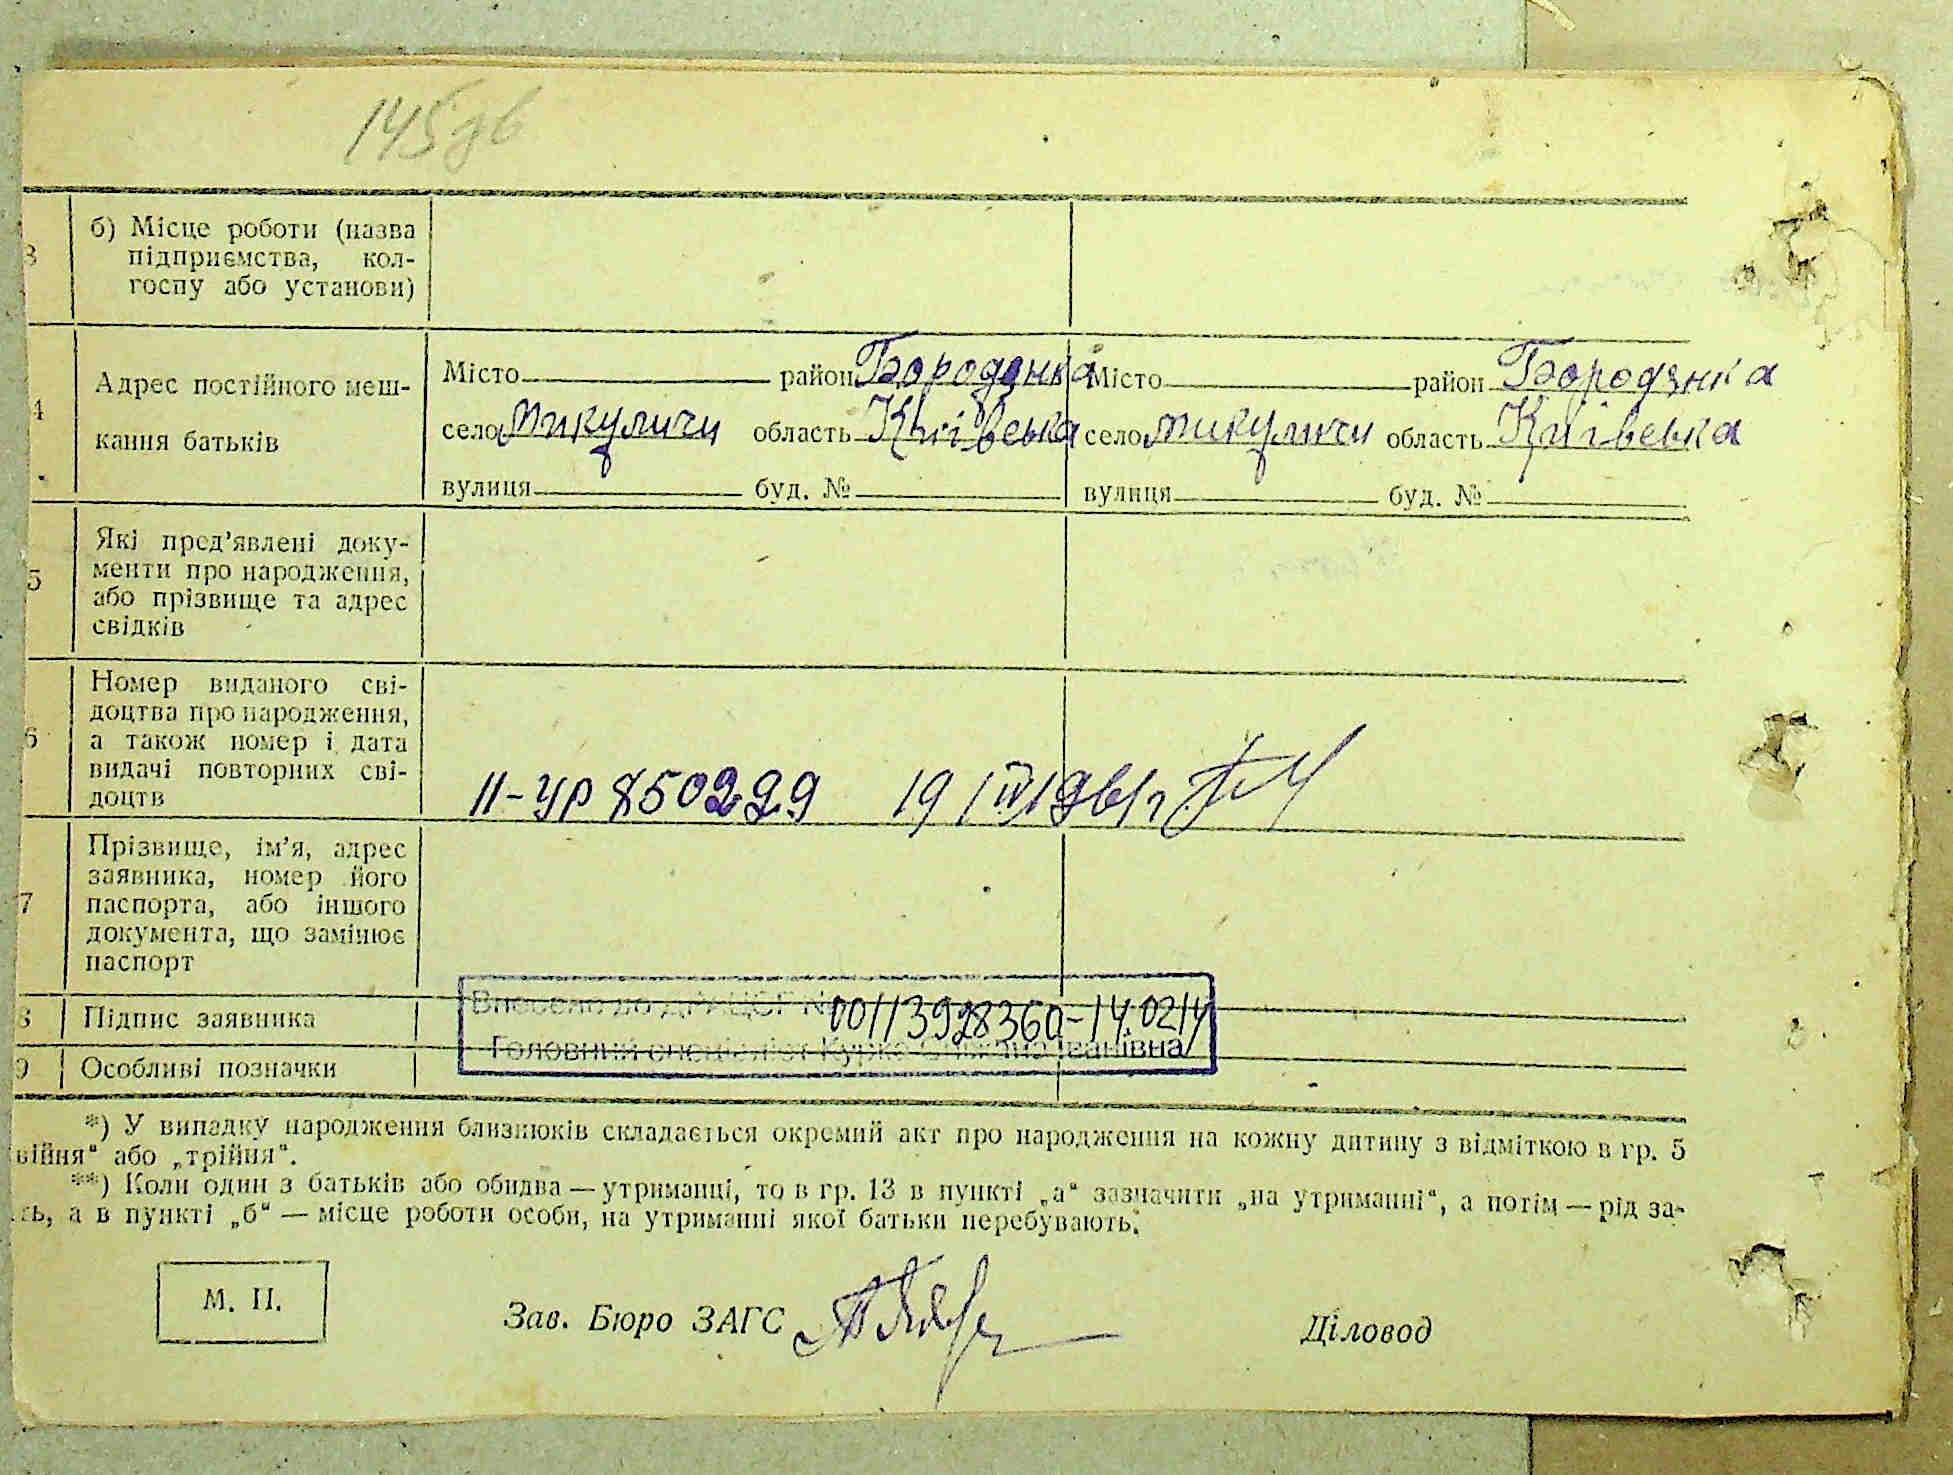 145зв
3 б) Місце роботи (назва
підприємства, кол-
госпу або установи)
4 Адрес постійного меш-
кання батьків
Місто район Бородянка Місто район Бородянка
село Микуличи область Київська село Микуличи область Київська
вулиця буд. № вулиця буд. №
5 Які пред’явлені доку-
менти про народження,
або прізвище та адрес
свідків
6 Номер виданого сві-
доцтва про народження,
а також номер і дата
видачі повторних сві-
доцтв
II-УР 850229 19/IV 1961г
7 Прізвище, ім’я, адрес
заявника, номер його
паспорта, або іншого
документа, що замінює
паспорт
8 Підпис заявника
Внесено до ДРАЦСГ № 00113928360-14.0214
Головний спеціаліст Іванівна
9 Особливі позначки
*) У випадку народження близнюків складається окремий акт про народження на кожну дитину з відміткою в гр. 5
війня“ або „трійня“.
**) Коли один з батьків або обидва — утриманці, то в гр. 13 в пункті „а“ зазначити „на утриманні“, а потім — рід за-
ть, а в пункті „б“ — місце роботи особи, на утриманні якої батьки перебувають.
М. П.
Зав. Бюро ЗАГС Діловод